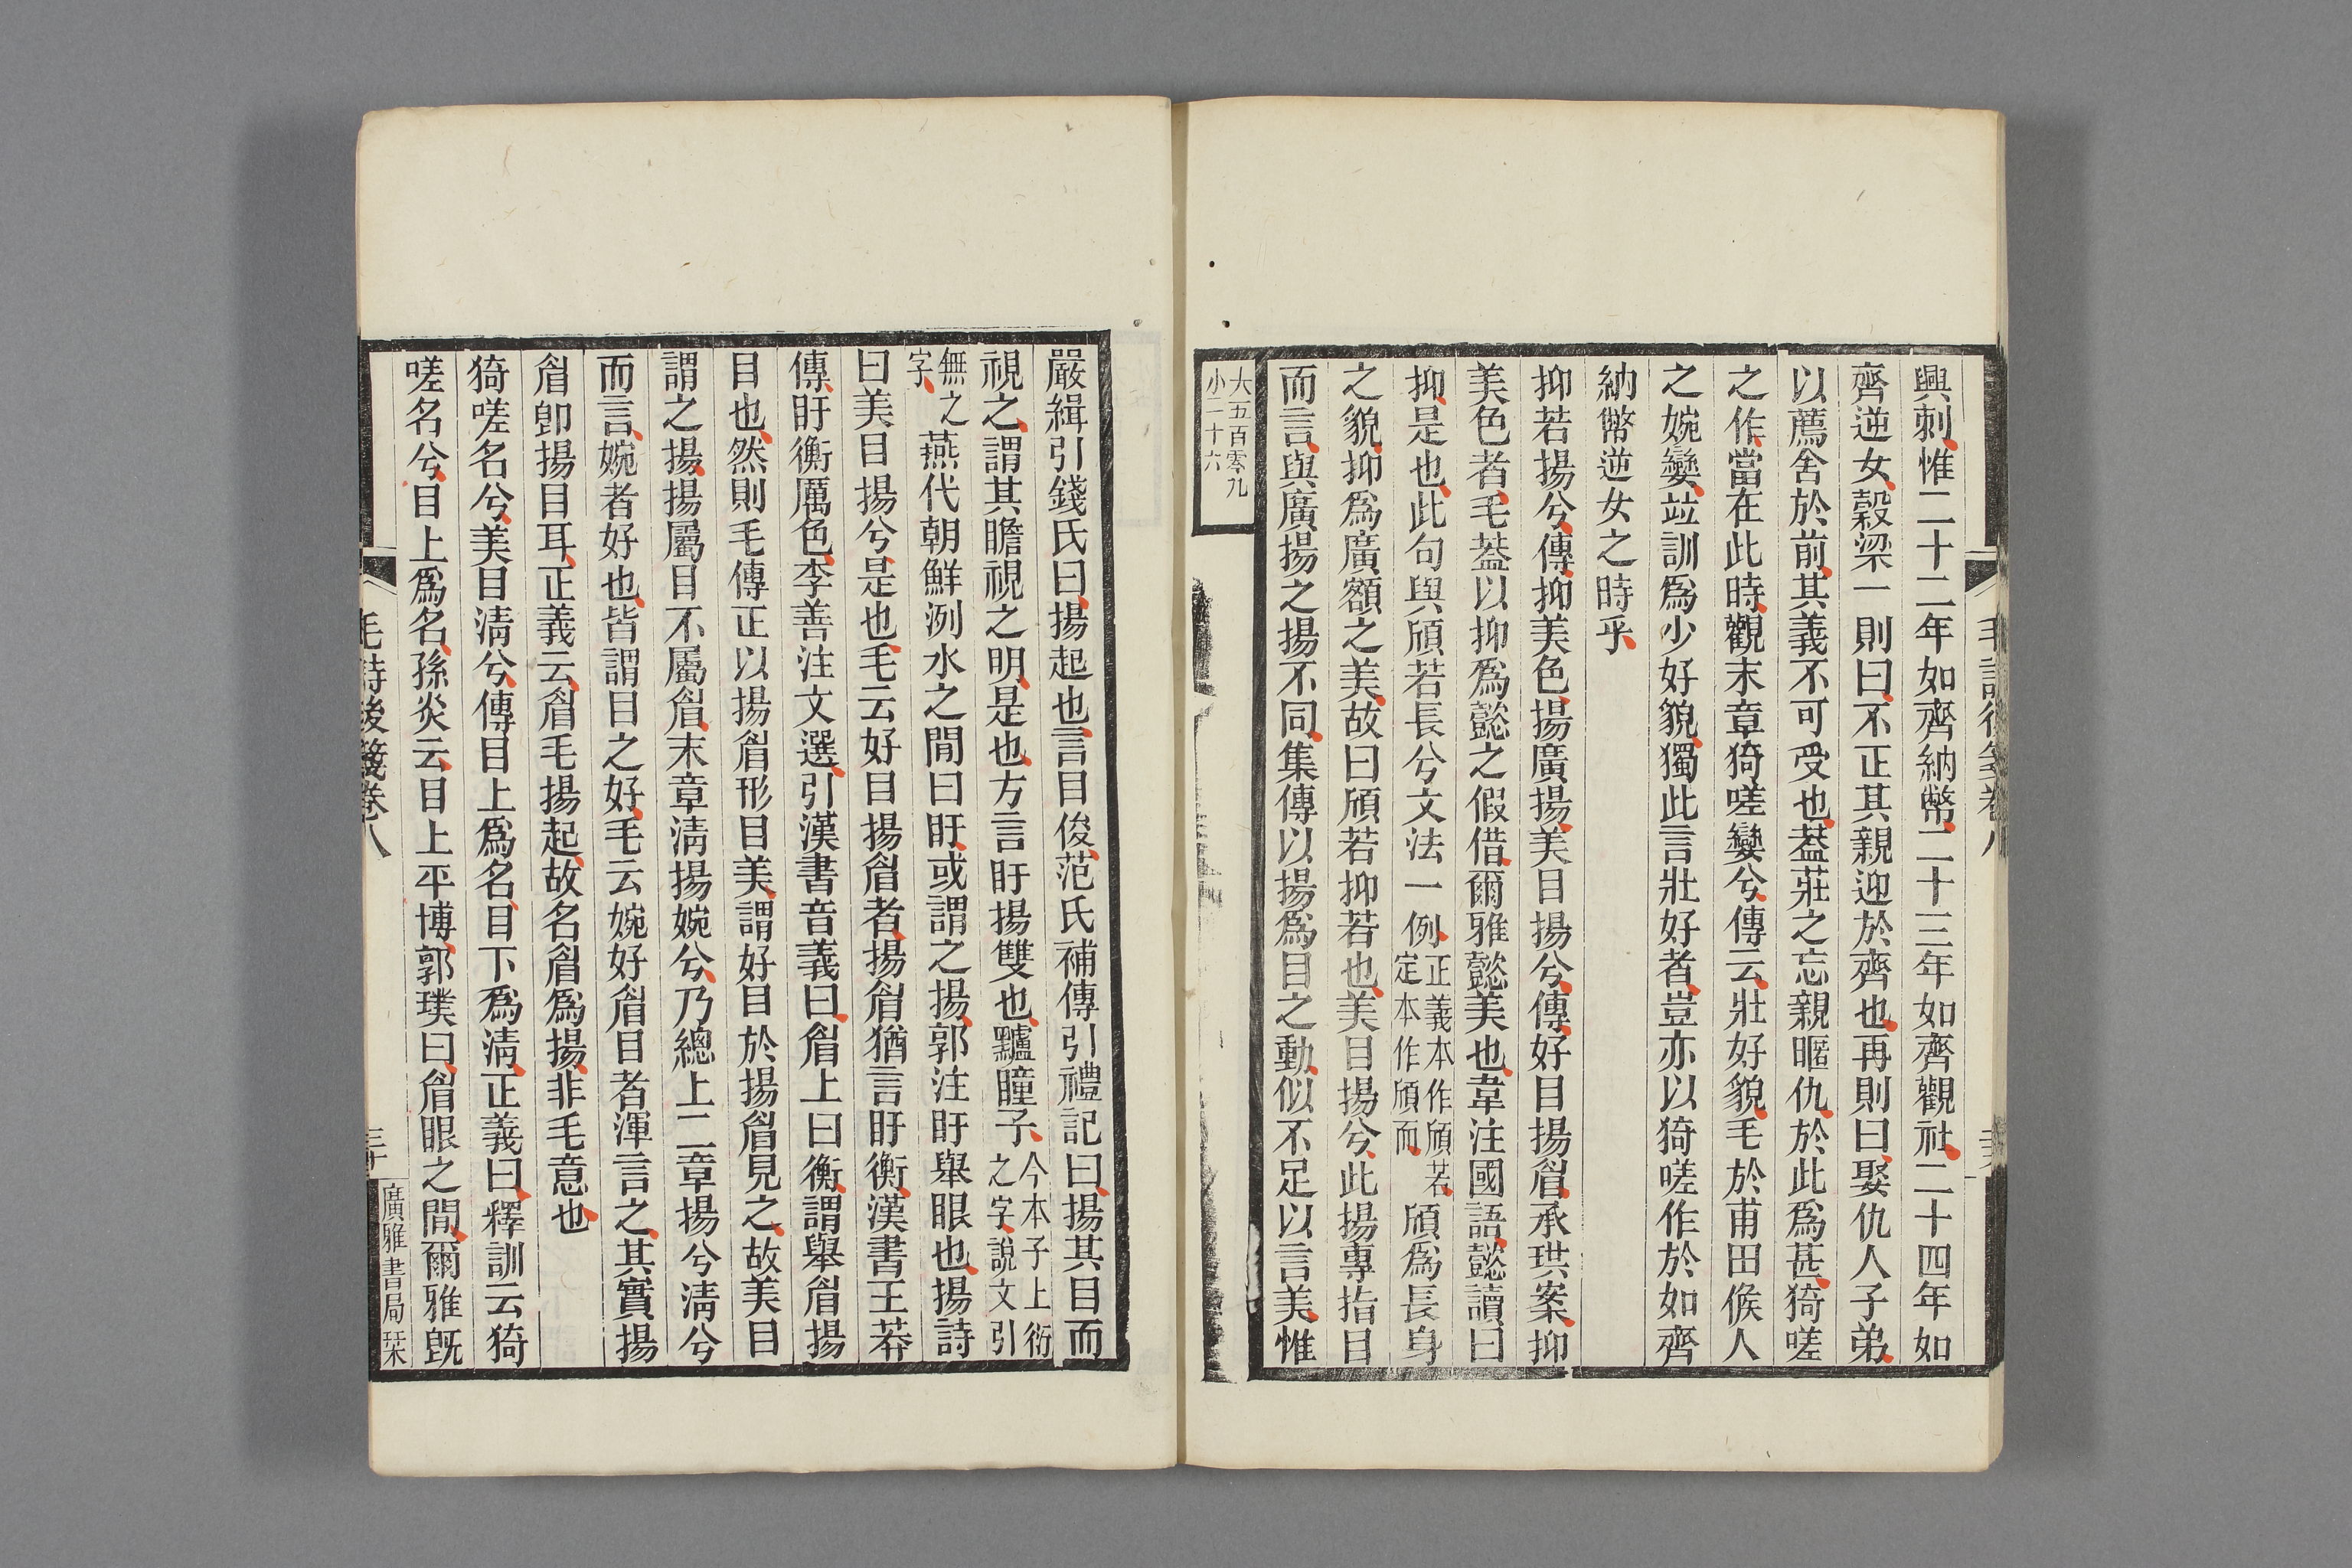 興刺惟二十二年如齊納幣二十三年如齊觀社二十四年如
齊逆女穀梁一則曰不正其親迎於齊也再則曰娶仇人子弟
以薦舍於前其義不可受也葢莊之忘親暱仇於此爲甚猗嗟
之作當在此時觀末章猗嗟孌兮傳云壯好貌毛於甫田候人
之婉孌竝訓爲少好貌獨此言壯好者豈亦以猗嗟作於如齊
納幣逆女之時乎
抑若揚兮傳抑美色揚廣揚美目揚兮傳好目揚睂承珙案抑
美色者毛葢以抑爲懿之假借爾雅懿美也韋注國語懿讀曰
抑是也此句與頎若長兮文法一例正義本作頎若定本作頎而頎爲長身
之貌抑爲廣額之美故曰頎若抑若也美目揚兮此揚專指目
而言與廣揚之揚不同集傳以揚爲目之動似不足以言美惟
大五百零九
小二十六
嚴緝引錢氏曰揚起也言目俊范氏補傳引禮記曰揚其目而
視之謂其瞻視之明是也方言盱揚雙也矑瞳子今本子上衍之字說文引
無之字燕代朝鮮洌水之閒曰盱或謂之揚郭注盱舉眼也揚詩
曰美目揚兮是也毛云好目揚睂者揚睂猶言盱衡漢書王莽
傳盱衡厲色李善注文選引漢書音義曰睂上曰衡謂舉睂揚
目也然則毛傳正以揚睂形目美謂好目於揚睂見之故美目
謂之揚揚屬目不屬睂末章淸揚婉兮乃總上二章揚兮淸兮
而言婉者好也皆謂目之好毛云婉好睂目者渾言之其實揚
睂卽揚目耳正義云睂毛揚起故名睂爲揚非毛意也
猗嗟名兮美目淸兮傳目上爲名目下爲淸正義曰釋訓云猗
嗟名兮目上爲名孫炎云目上平博郭璞曰睂眼之閒爾雅旣
毛詩後箋卷八
三十
廣雅書局栞